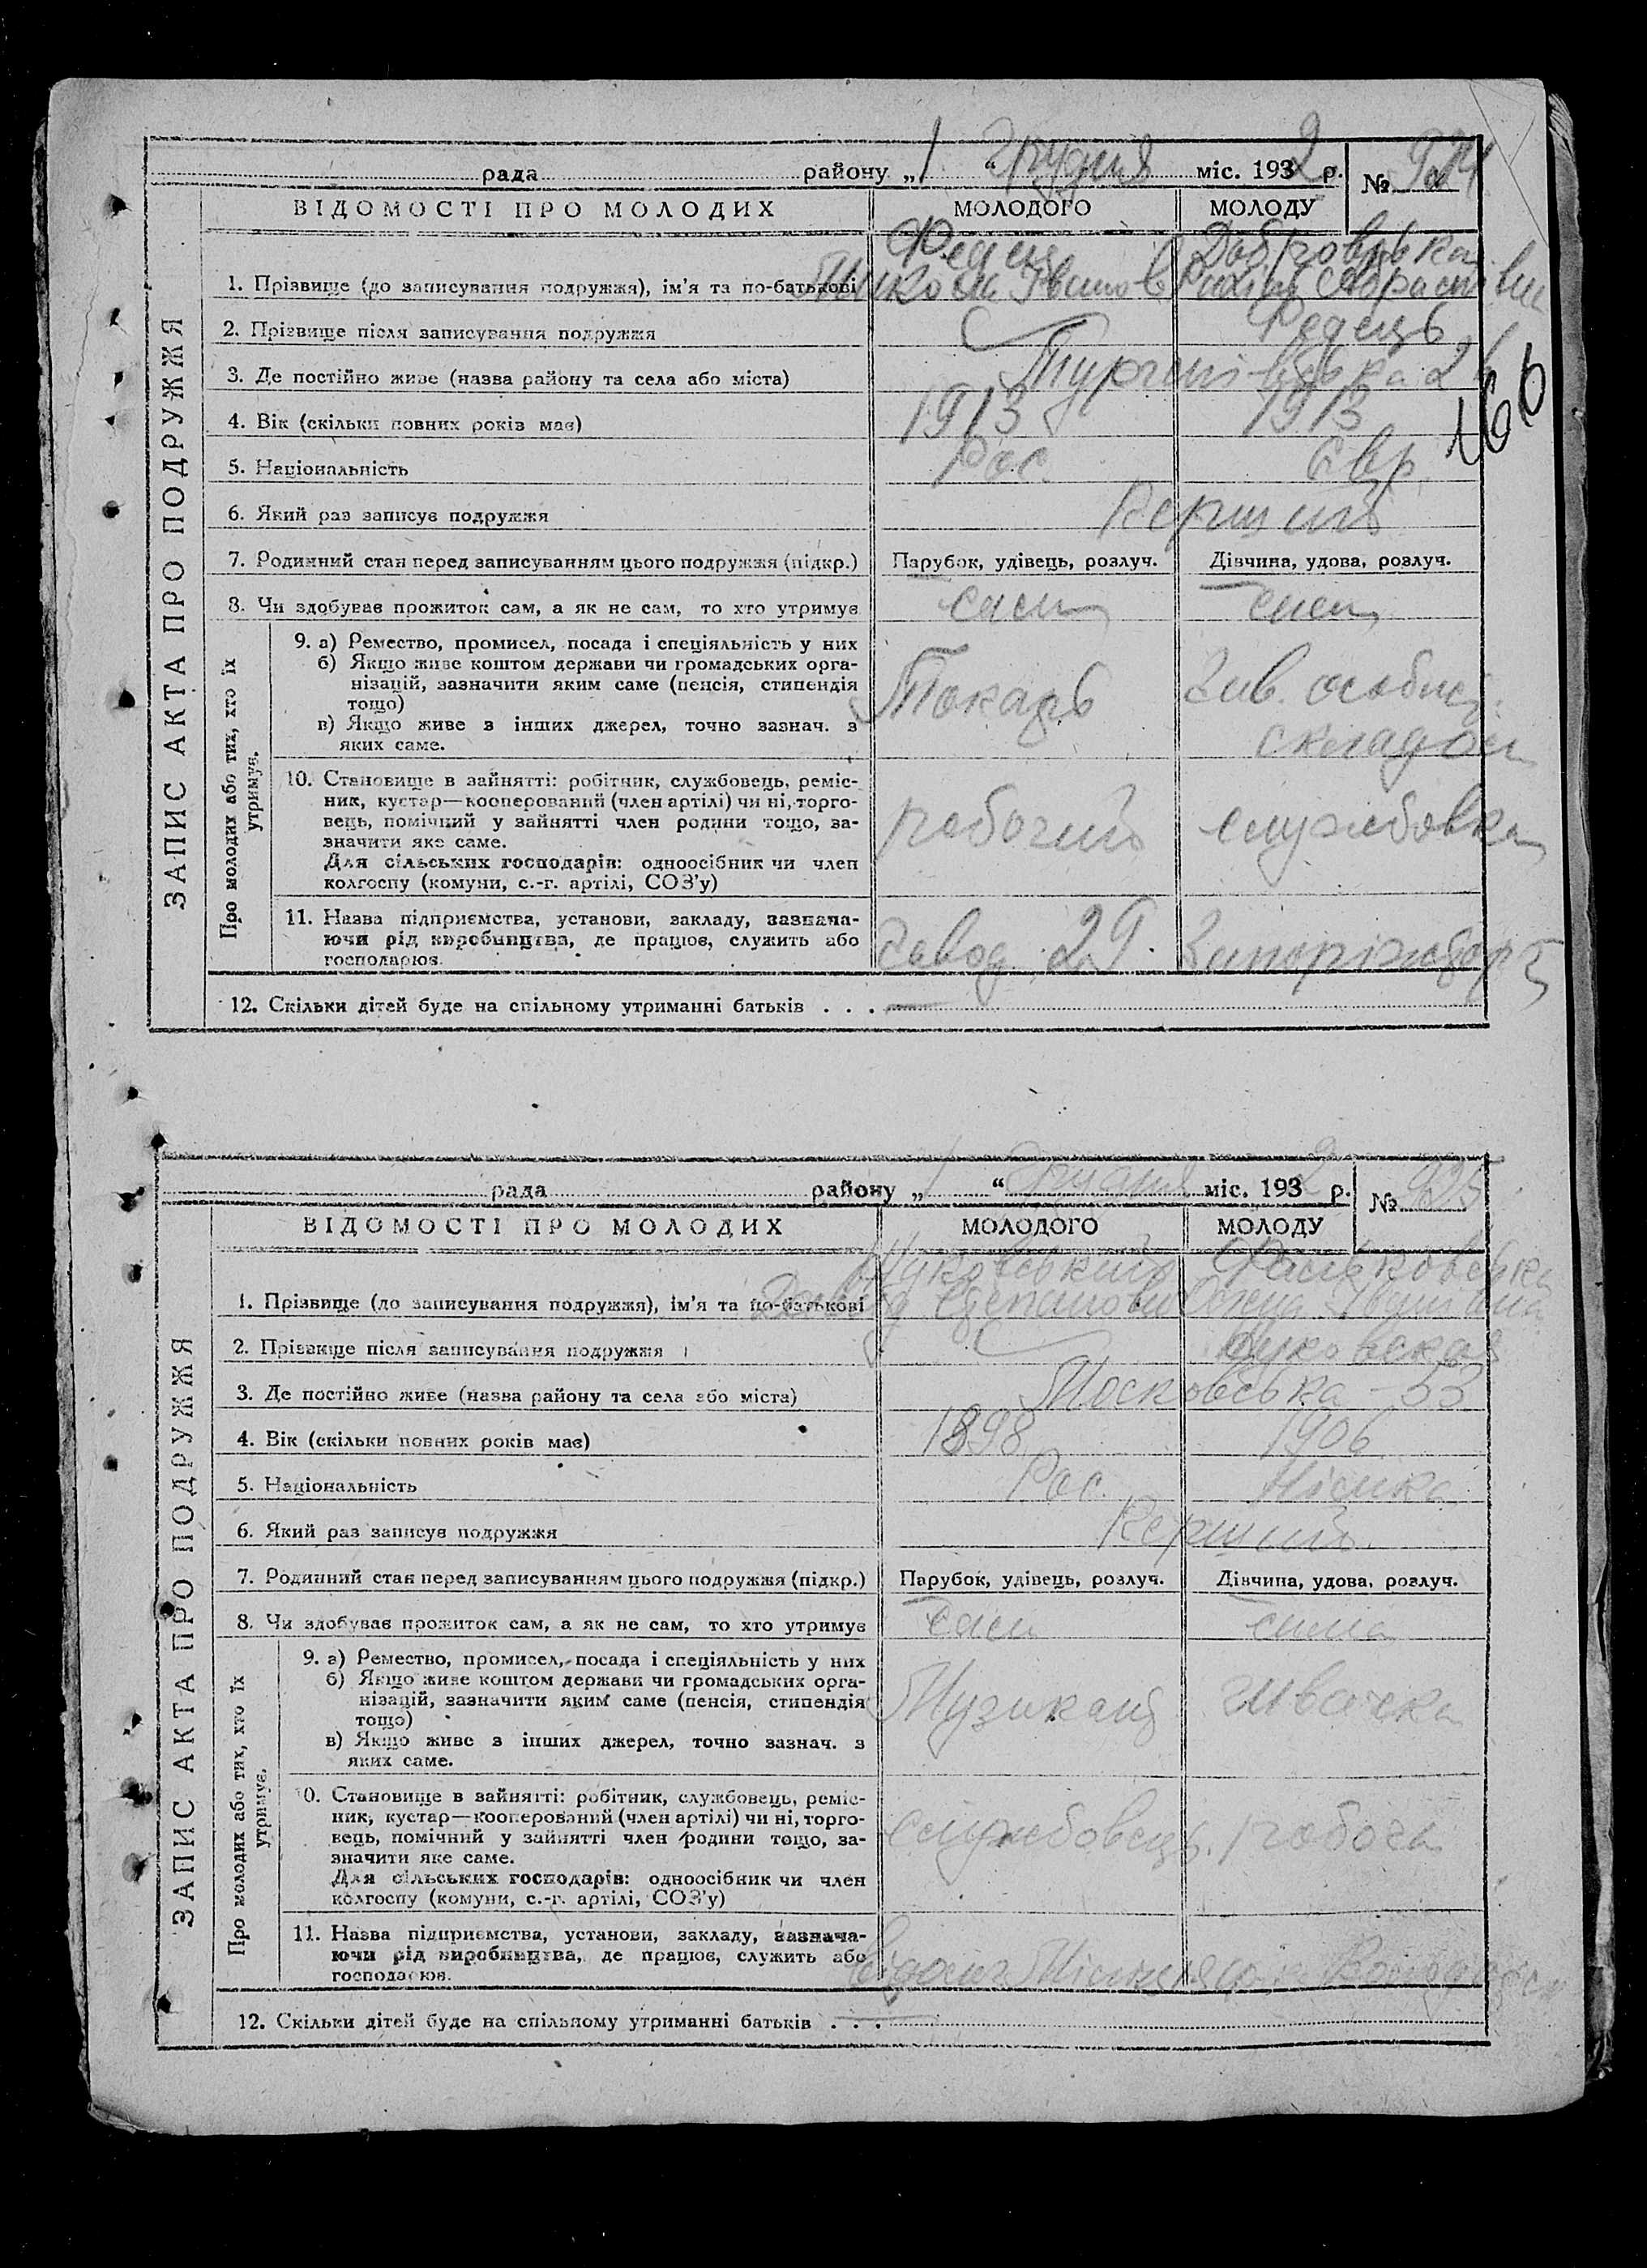 рада району „1“ Грудня міс. 1932 р. № 924
ВІДОМОСТІ ПРО МОЛОДИХ МОЛОДОГО МОЛОДУ
ЗАПИС АКТА ПРО ПОДРУЖЖЯ
Добровська
1. Прізвище (до записування подружжя), ім'я та по-батькові
2. Прізвище після записування подружжя Федець
3. Де постійно живе (назва району та села або міста)
166
4. Вік (скільки повних років має) 1913 1913
5. Національність Рос. Євр.
6. Який раз записує подружжя Перший
7. Родинний стан перед записуванням цього подружжя (підкр.) Парубок, удівець, розлуч. Дівчина, удова, розлуч.
8. Чи здобуває прожиток сам, а як не сам, то хто утримує сам сам
Про молодих або тих, хто їх утримує.
9. а) Ремество, промисел, посада і спеціяльність у них
б) Якщо живе коштом держави чи громадських орга-
нізацій, зазначити яким саме (пенсія, стипендія
тощо)
Токарь Зав. особист.
в) Якщо живе з інших джерел, точно зазнач. з
яких саме.
складом
10. Становище в зайнятті: робітник, службовець, реміс-
ник, кустар—кооперований (член артілі) чи ні, торго-
вець, помічний у зайнятті член родини тощо, за-
значити яке саме.
робочий службовка
Для сільських господарів: одноосібник чи член
колгоспу (комуни, с.-г. артілі, СОЗ'у)
11. Назва підприємства, установи, закладу, зазнача-
ючи рід виробництва, де працює, служить або
господарює.
Завод 29.
12. Скільки дітей буде на спільному утриманні батьків . . . —
рада району „1“ Грудня міс. 1932 р. № 925
ВІДОМОСТІ ПРО МОЛОДИХ МОЛОДОГО МОЛОДУ
ЗАПИС АКТА ПРО ПОДРУЖЖЯ
1. Прізвище (до записування подружжя), ім'я та по-батькові
2. Прізвище після записування подружжя
3. Де постійно живе (назва району та села або міста) Московська - 53
4. Вік (скільки повних років має) 1898 1906
5. Національність Рос. Німка
6. Який раз записує подружжя Перший.
7. Родинний стан перед записуванням цього подружжя (підкр.) Парубок, удівець, розлуч. Дівчина, удова, розлуч.
8. Чи здобуває прожиток сам, а як не сам, то хто утримує сам сама
Про молодих або тих, хто їх утримує.
9. а) Ремество, промисел, посада і спеціяльність у них
б) Якщо живе коштом держави чи громадських орга-
нізацій, зазначити яким саме (пенсія, стипендія
тощо)
Музикант швачка
в) Якщо живе з інших джерел, точно зазнач. з
яких саме.
10. Становище в зайнятті: робітник, службовець, реміс-
ник, кустар—кооперований (член артілі) чи ні, торго-
вець, помічний у зайнятті член родини тощо, за-
значити яке саме.
службовець. робоча
Для сільських господарів: одноосібник чи член
колгоспу (комуни, с.-г. артілі, СОЗ'у)
11. Назва підприємства, установи, закладу, зазнача-
ючи рід виробництва, де працює, служить або
господарює.
12. Скільки дітей буде на спільному утриманні батьків . . . —